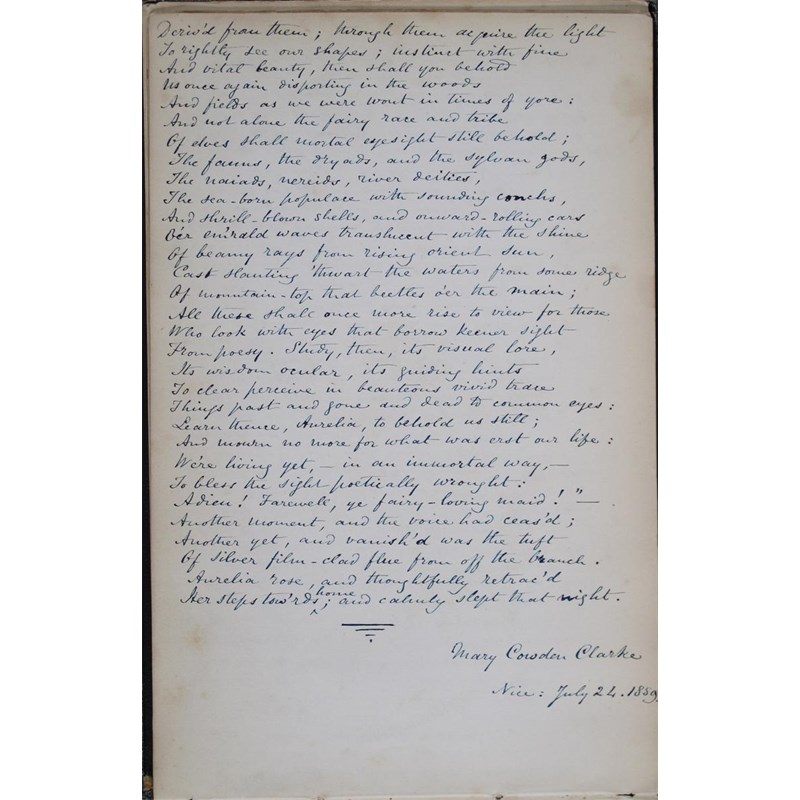 Deriv'd from them; through them acquire the light
To rightly see our shapes; instinct with fine
And vital beauty, then shall you behold
Us once again disporting in the woods
And fields as we were wont in times of yore:
And not alone the fairy race and tribe
Of elves shall mortal eyesight still behold;
The fauns, the dryads, and the sylvan gods,
The naiads, nereids, river deities,
The sea-born populace with sounding conchs,
And shrill-blown shells, and onward-rolling cars
O'er em'rald waves translucent with the shine
Of beamy rays from rising orient sun,
Cast slanting 'thwart the waters from some ridge
Of mountain-top that beetles o'er the main;
All these shall once more rise to view for those
Who look with eyes that borrow keener sight
From poesy. Study, then, its visual lore,
Its wisdom ocular, its guiding hints
To clear perceive in beauteous vivid trace
Things past and gone and dead to common eyes:
Learn thence, Aurelia, to behold us still;
And mourn no more for what was erst our life:
We're living yet, – in an immortal way, –
To bless the sight poetically wrought:
Adieu! Farewell, ye fairy-loving maid!" —
Another moment, and the voice had ceas'd;
Another yet, and vanish'd was the tuft
Of silver film-clad flue from off the branch.
Aurelia rose, and thoughtfully retrac'd
Her steps tow'rds home; and calmly slept that night.
Mary Cowden Clarke
Nice: July 24. 1859.